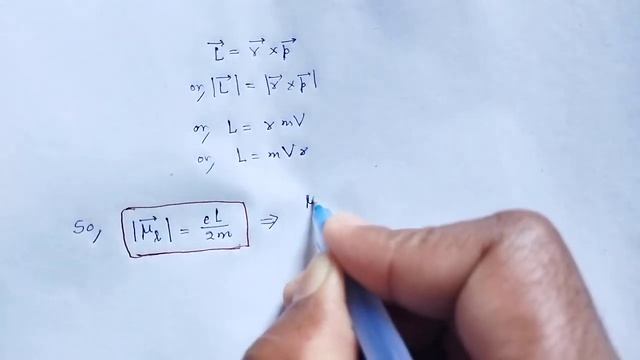 L⃗ = r⃗ × p⃗
or, |L⃗| = |r⃗ × p⃗|
or, L = r m V
or, L = m V r
So, |μ⃗_l| = eL/2m ⇒ μ